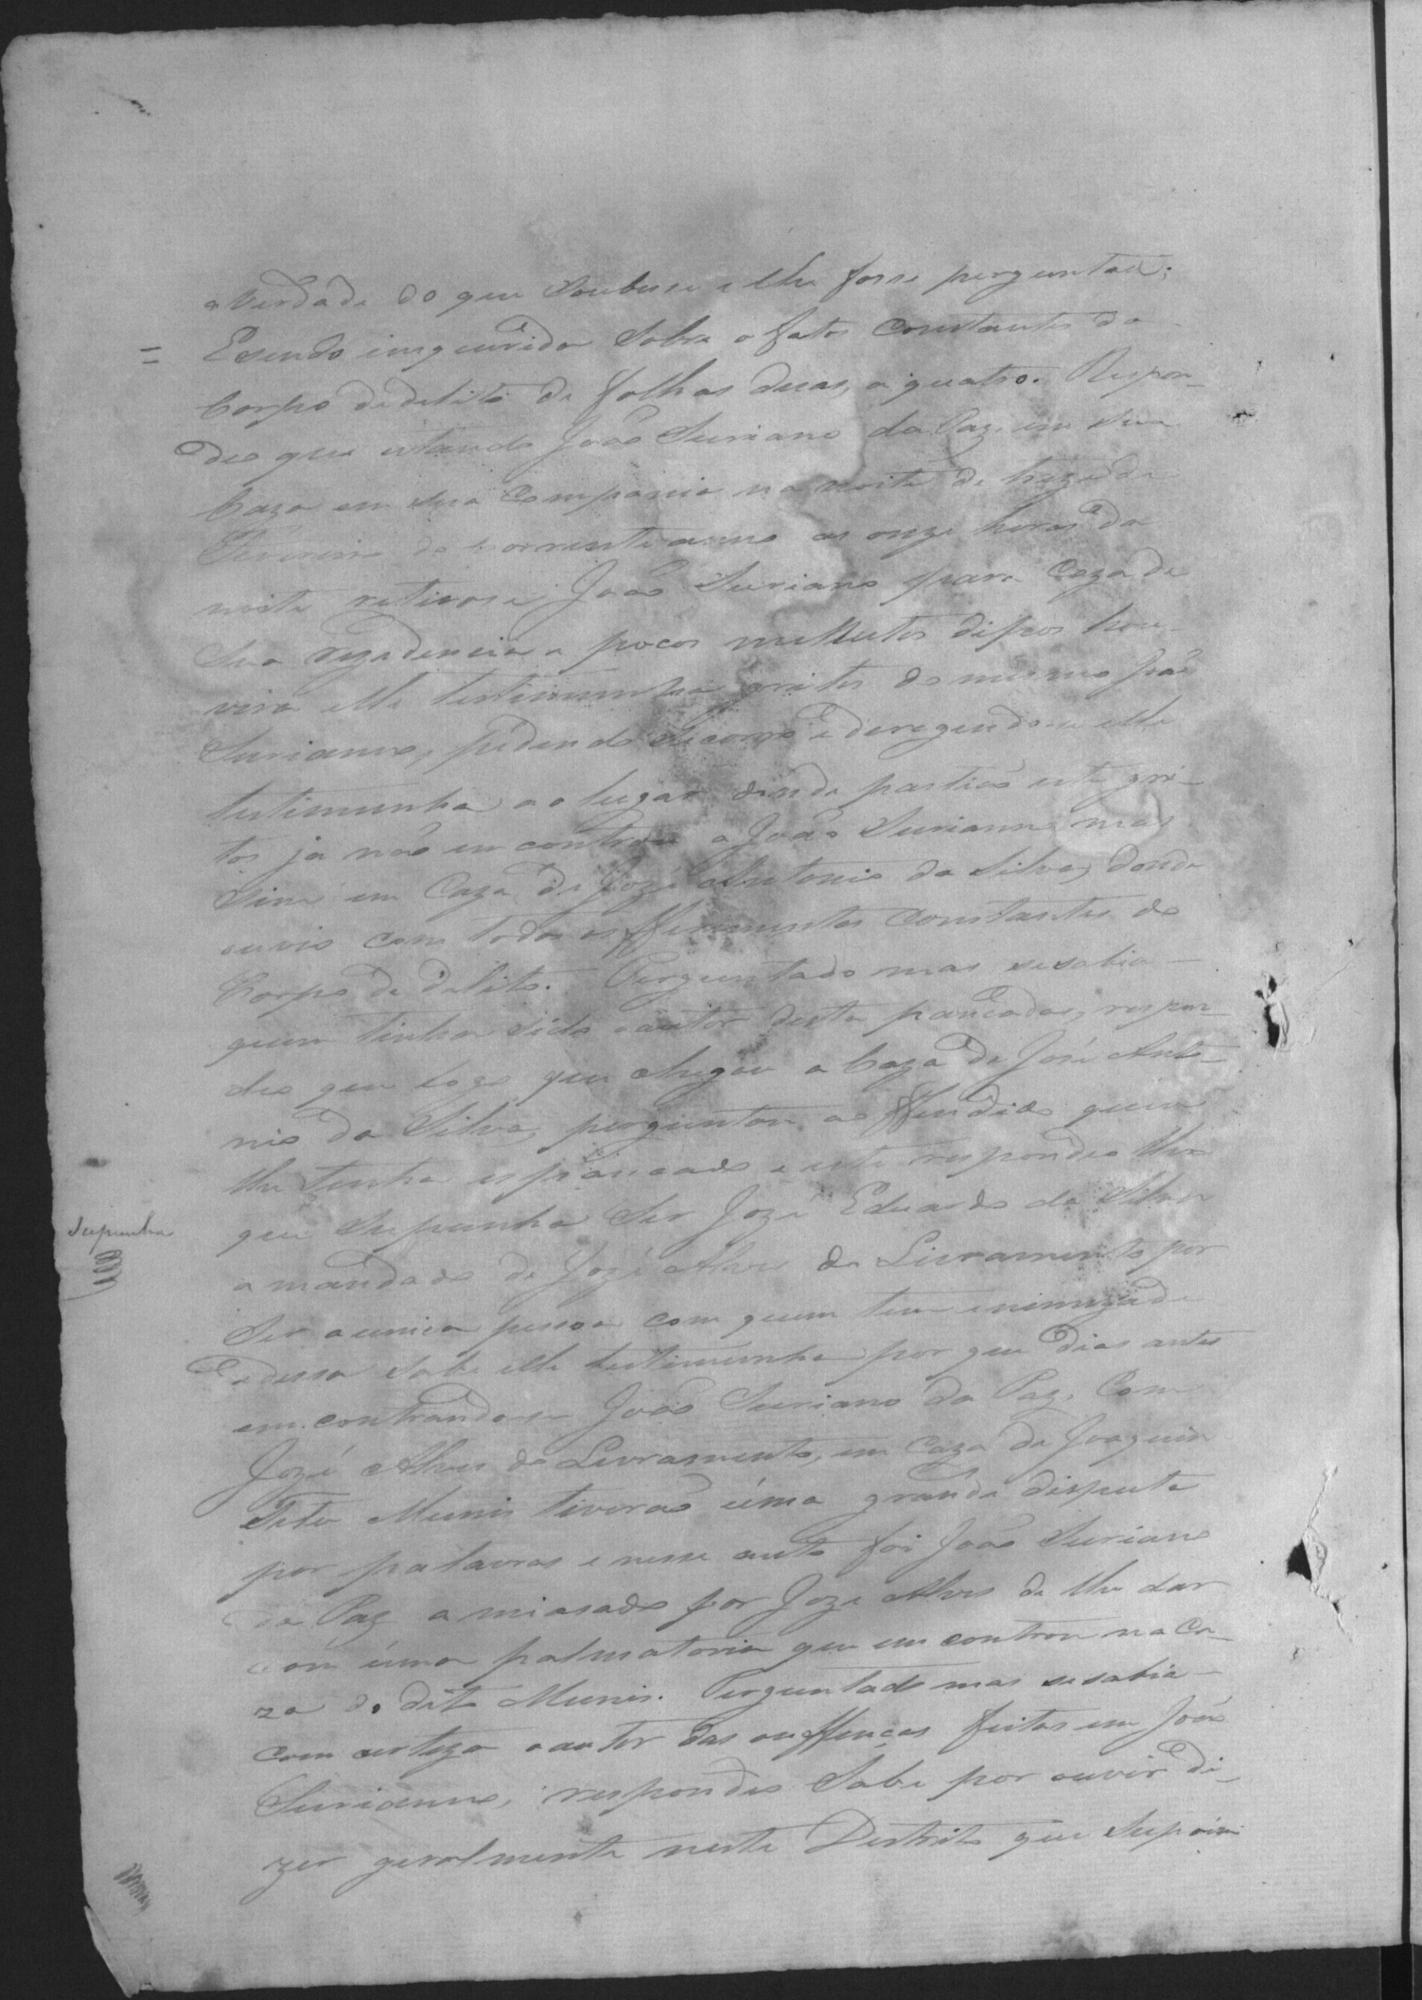 a Verdade do que Soubese e lhe fosse perguntado;
= Esendo inquerido Sobre o fatos Constantes do
Corpo dedelito de folhas duas, a quatro. Respon-
deo que estando João Suriano da Paz, em sua
Caza em sua Companhia na noite de treze de
Fevereiro do Corrente anno as onze horas da
noite retirose João Suriano para Caza de
Sua rezadencia a pocos menutos dipois hou-
vira elle testimunha gritos do mesmo João
Surianno, pedendo Secorro e deregendose elle
testimunha ao lugar donde partirão este gri-
tos ja não encontrou a João Surianno mas
Sim em Caza de Jozé Antonio da Silva, donde
ouvio com todos os fferimentos Constantes do
Corpo de delito. Perguntado mas sesabia
quem tinha sido o autor desta pancadas, respon-
deo que logo que chegou a Caza de José Anto-
nio da Silva, perguntou ao ffendido quem
lhe tinha espancado e este respondeo lhe
que Supunha Ser Jozé Eduardo da Silva
Supunha
a mandado de Jozé Alves do Livramento por
Ser a unica pessoa com quem tem enimizade
e dessa Sabe elle testimunha por que dias antes
em contrandose João Suriano da Paz, Com
Jozé Alves do Livramento, em Caza de Joaquim
Tito Munis tiverão uma grande disputa
por palavras e nesse auto foi João Suriano
da Paz amiasado por Joze Alves de lhe dar
com uma palmatoria que em controu na Ca-
za do dito Munis. Perguntado mas sesabia
com certeza o autor das ouffenças feitas em João
Surianno, respondeo Sabe por ouvir di-
zer geralmente neste Destrito que